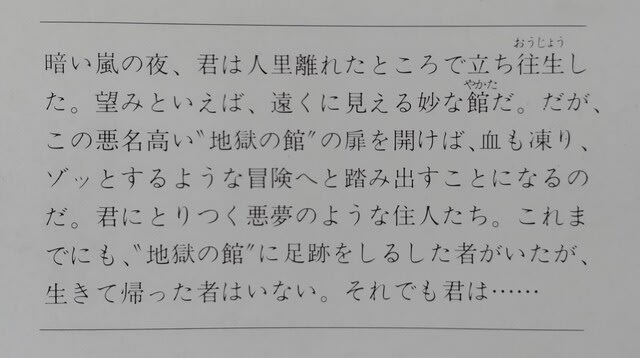 暗い嵐の夜、君は人里離れたところで立ち往生し
た。望みといえば、遠くに見える妙な館だ。だが、
この悪名高い〝地獄の館〟の扉を開けば、血も凍り、
ゾッとするような冒険へと踏み出すことになるの
だ。君にとりつく悪夢のような住人たち。これま
でにも、〝地獄の館〟に足跡をしるした者がいたが、
生きて帰った者はいない。それでも君は……